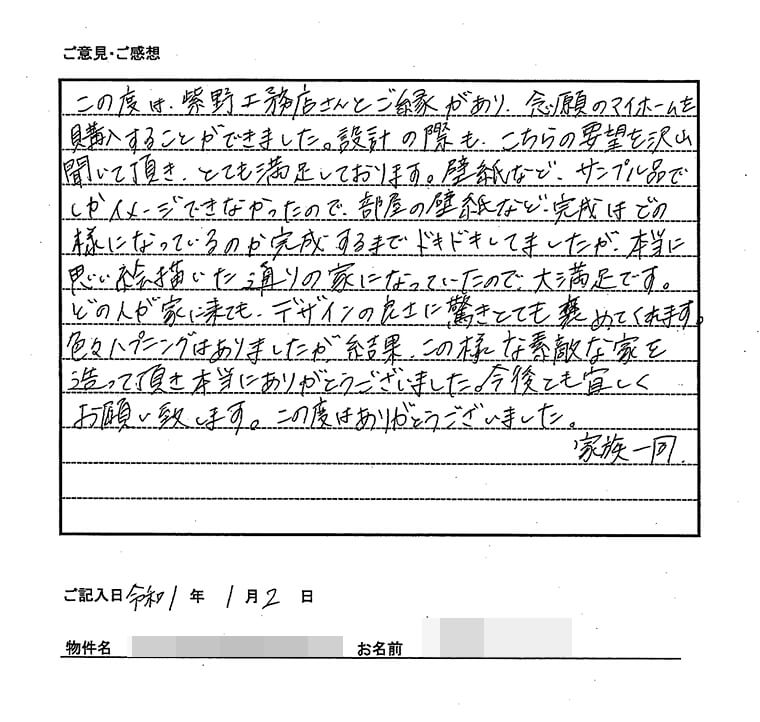 ご意見・ご感想
この度は、紫野工務店さんとご縁があり、念願のマイホームを
購入することができました。設計の際も、こちらの要望を沢山
聞いて頂き、とても満足しております。壁紙など、サンプル品で
しかイメージできなかったので、部屋の壁紙など、完成はどの
様になっているのか完成するまでドキドキしてましたが、本当に
思い絵描いた通りの家になっていたので、大満足です。
どの人が家に来ても、デザインの良さに驚きとても褒めてくれます。
色々ハプニングはありましたが、結果、この様な素敵な家を
造って頂き本当にありがとうございました。今後とも宜しく
お願い致します。この度はありがとうございました。
家族一同.
ご記入日 令和1年 1月2日
物件名 お名前